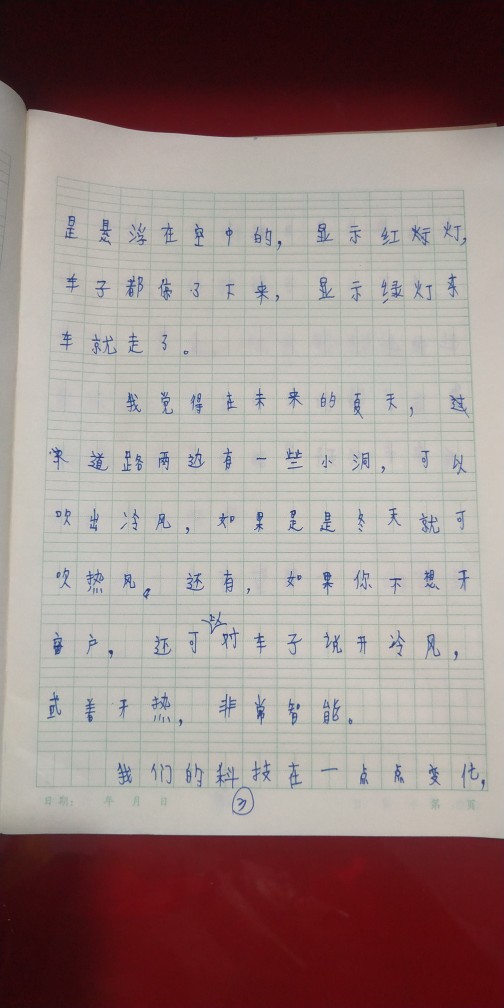 是悬浮在空中的，显示红标灯，
车子都停了下来，显示绿灯东
车就走了。
我觉得在未来的夏天，过
家道路两边有一些小洞，可以
吹出冷风，如果是是冬天就可
吹热风。还有，如果你不想开
窗户，还可以对车子说开冷风，
或者开热，非常智能。
我们的科技在一点点变化，
日期： 年 月 日 ③ 第 页